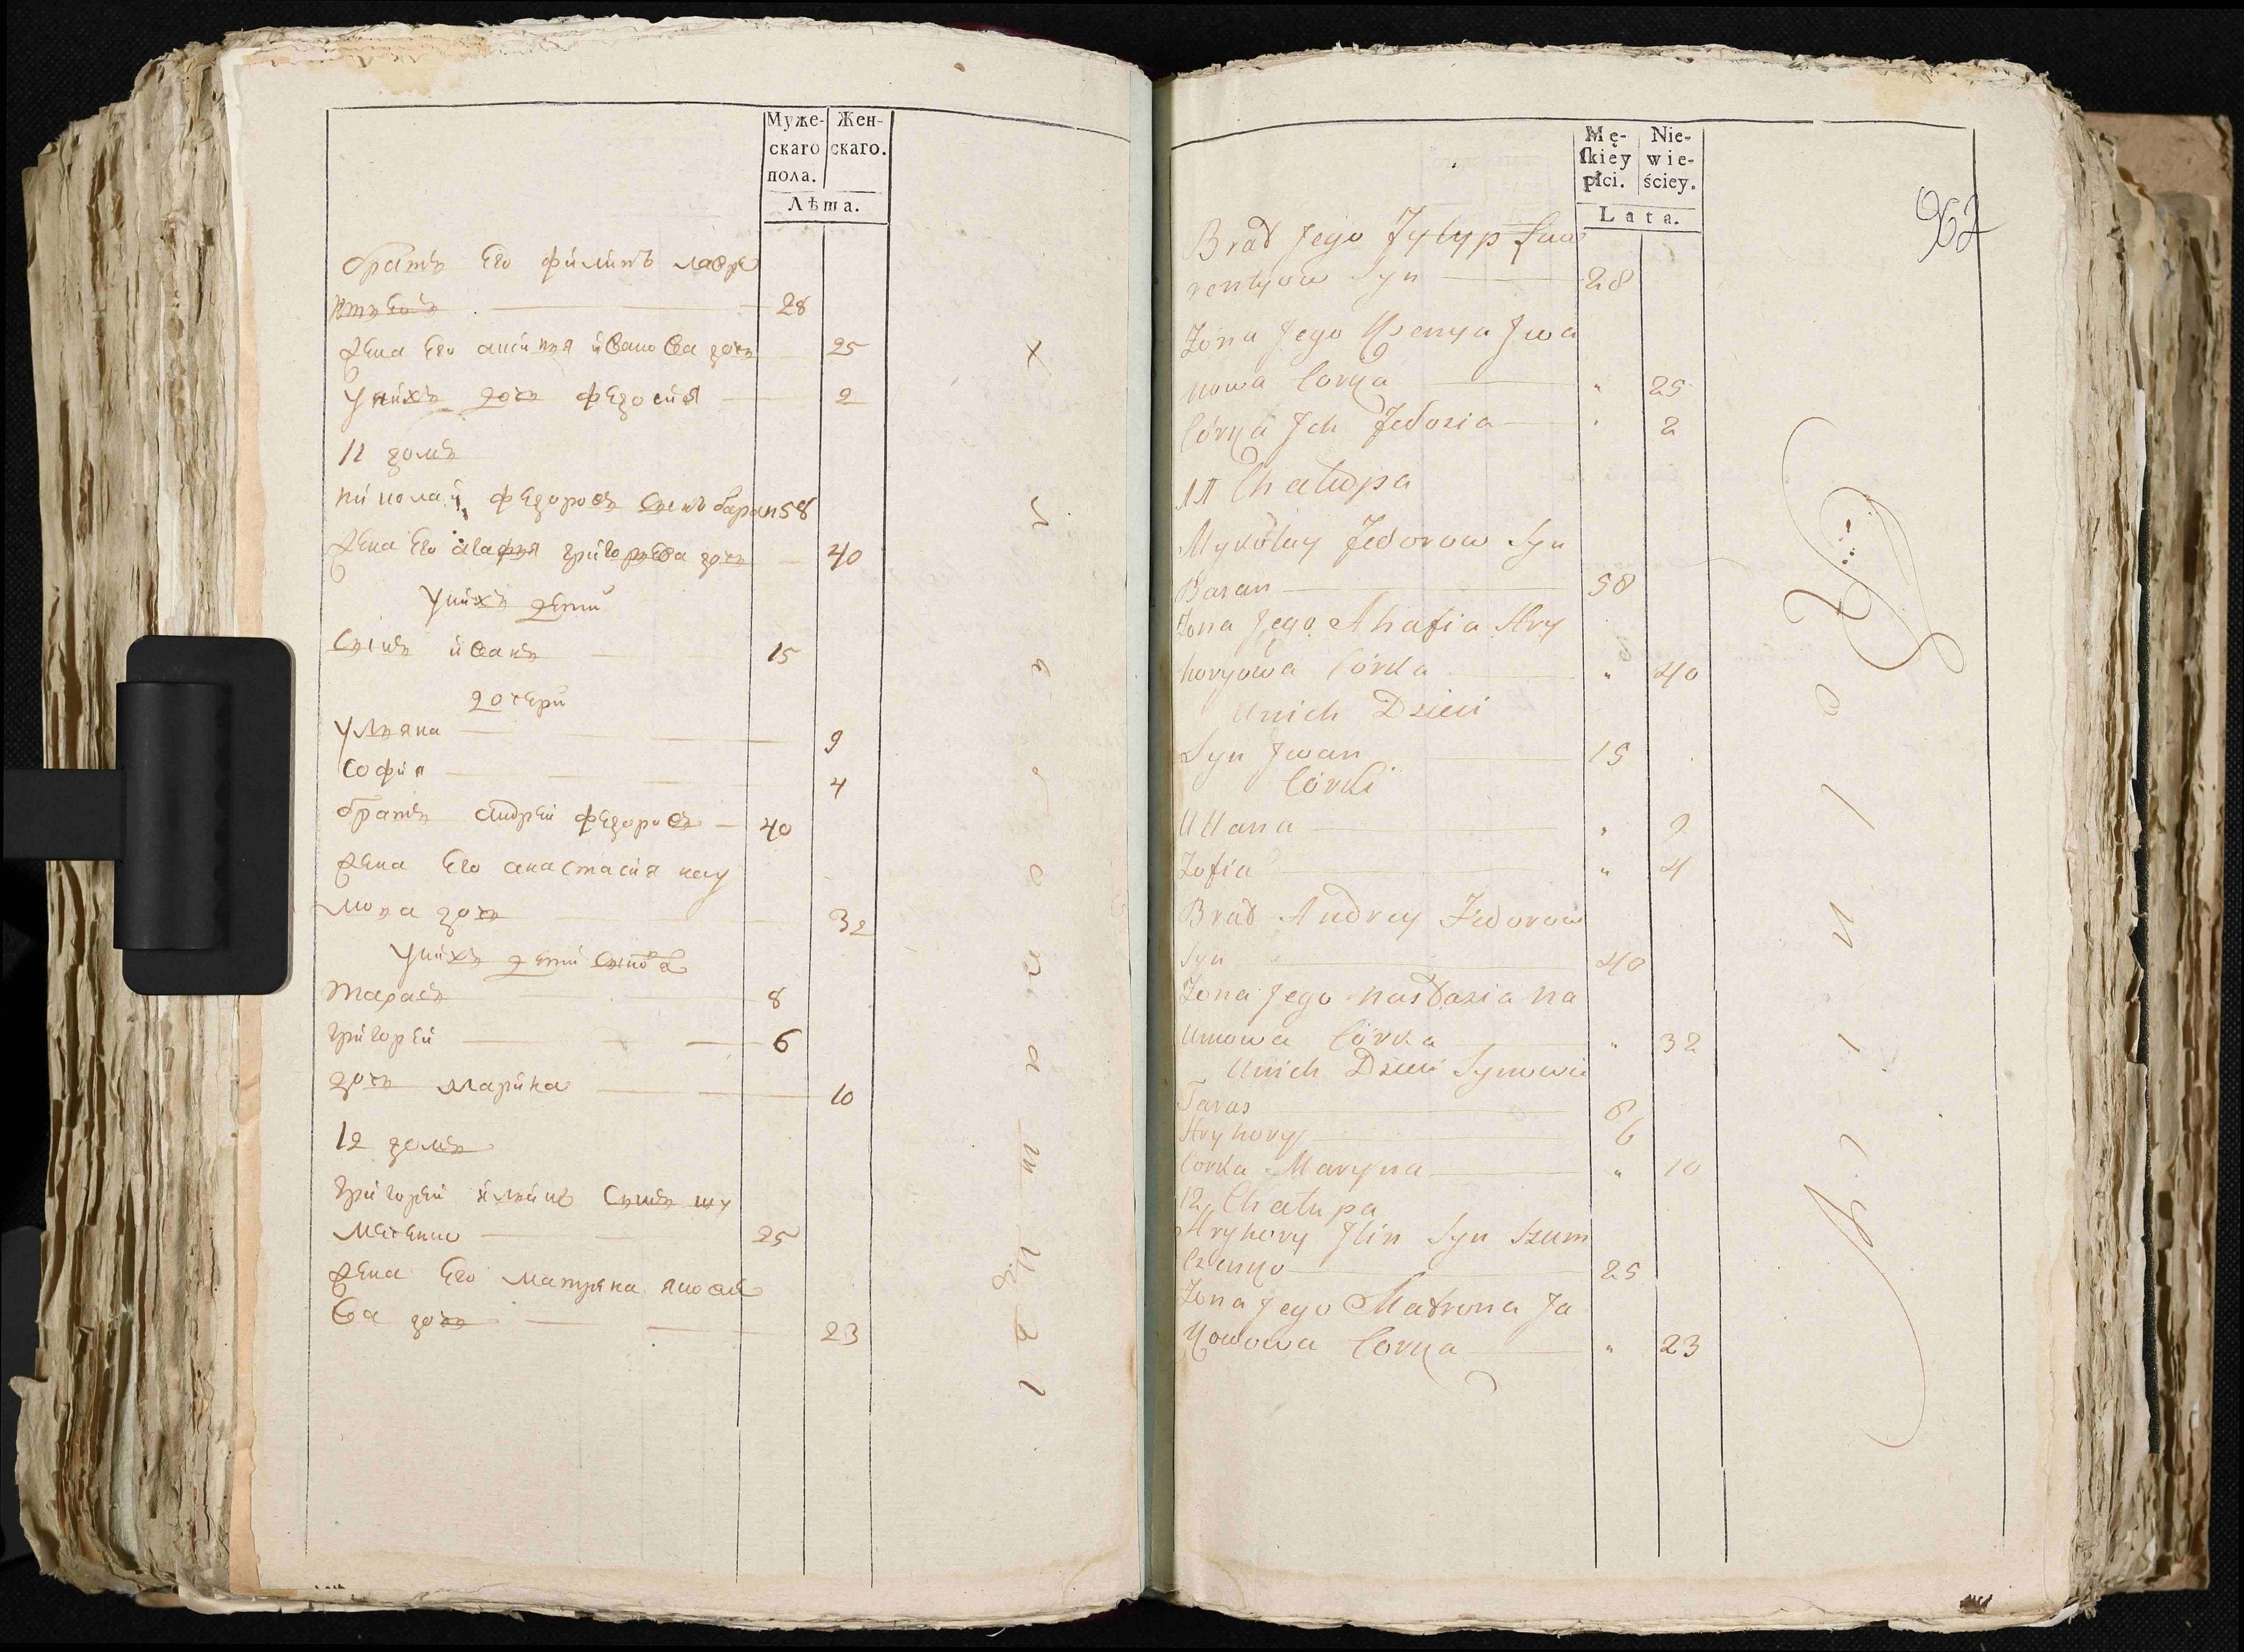 Муже- Жен-
скаго скаго.
пола.
Лѣта.
братъ Его филипъ лавре
нтьевъ 28
жена Его аксинья ивановa дочь 25
Унихъ дочь федосия 2
11 домъ
николай федоровъ сынъ баран 58
жена Его агафья григорьева дочь 40
Унихъ дети
Сынъ иванъ 15
дочери
Ульяна 9
София 4
братъ андрей федоровъ 40
жена Его анастасия нау
мова дочь 32
Унихъ дети Сыновя
тарасъ 8
григорей 6
дочь марина 10
12 домъ
григорей ильинъ Сынъ шу
мченко 25
жена Его матрена якове
ва дочь 23
Mę- Nie-
skiey wie-
płci. ściey.
Lata.
962
Brat Jego Fylyp Law
rentyow Syn 28
Zona Jego Xsenya Jwa
nowa Corka " 25
Córka Jch Fedosia " 2
11 Chałupa
Mykołay Fedorow Syn
Baran 58
Zona Jego Ahafia Hry
horyowa Córka " 40
Unich Dzieci
Syn Jwan 15
Córki
Ullana " 9
Zofia " 4
Brat Andrey Fedorow
Syn 40
Zona Jego Nastazia Na
umowa Córka " 32
Unich Dzieci Synowie
Taras 8
Hryhory 6
Corka Maryna " 10
12 Chałupa
Hryhory Jlin Syn Szum
czenko 25
Zona Jego Matrona Ja
kowowa Corka " 23